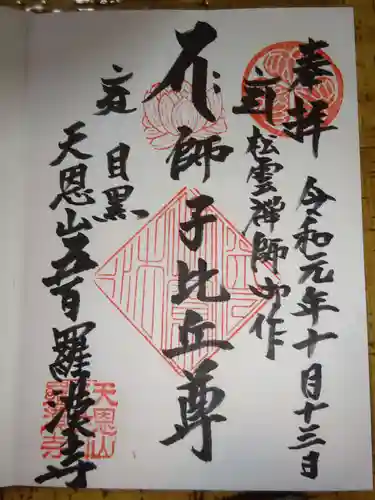 奉拝 令和元年十月十三日
松雲禅師御作
師子比丘尊
目黒
天恩山五百羅漢寺
天恩山